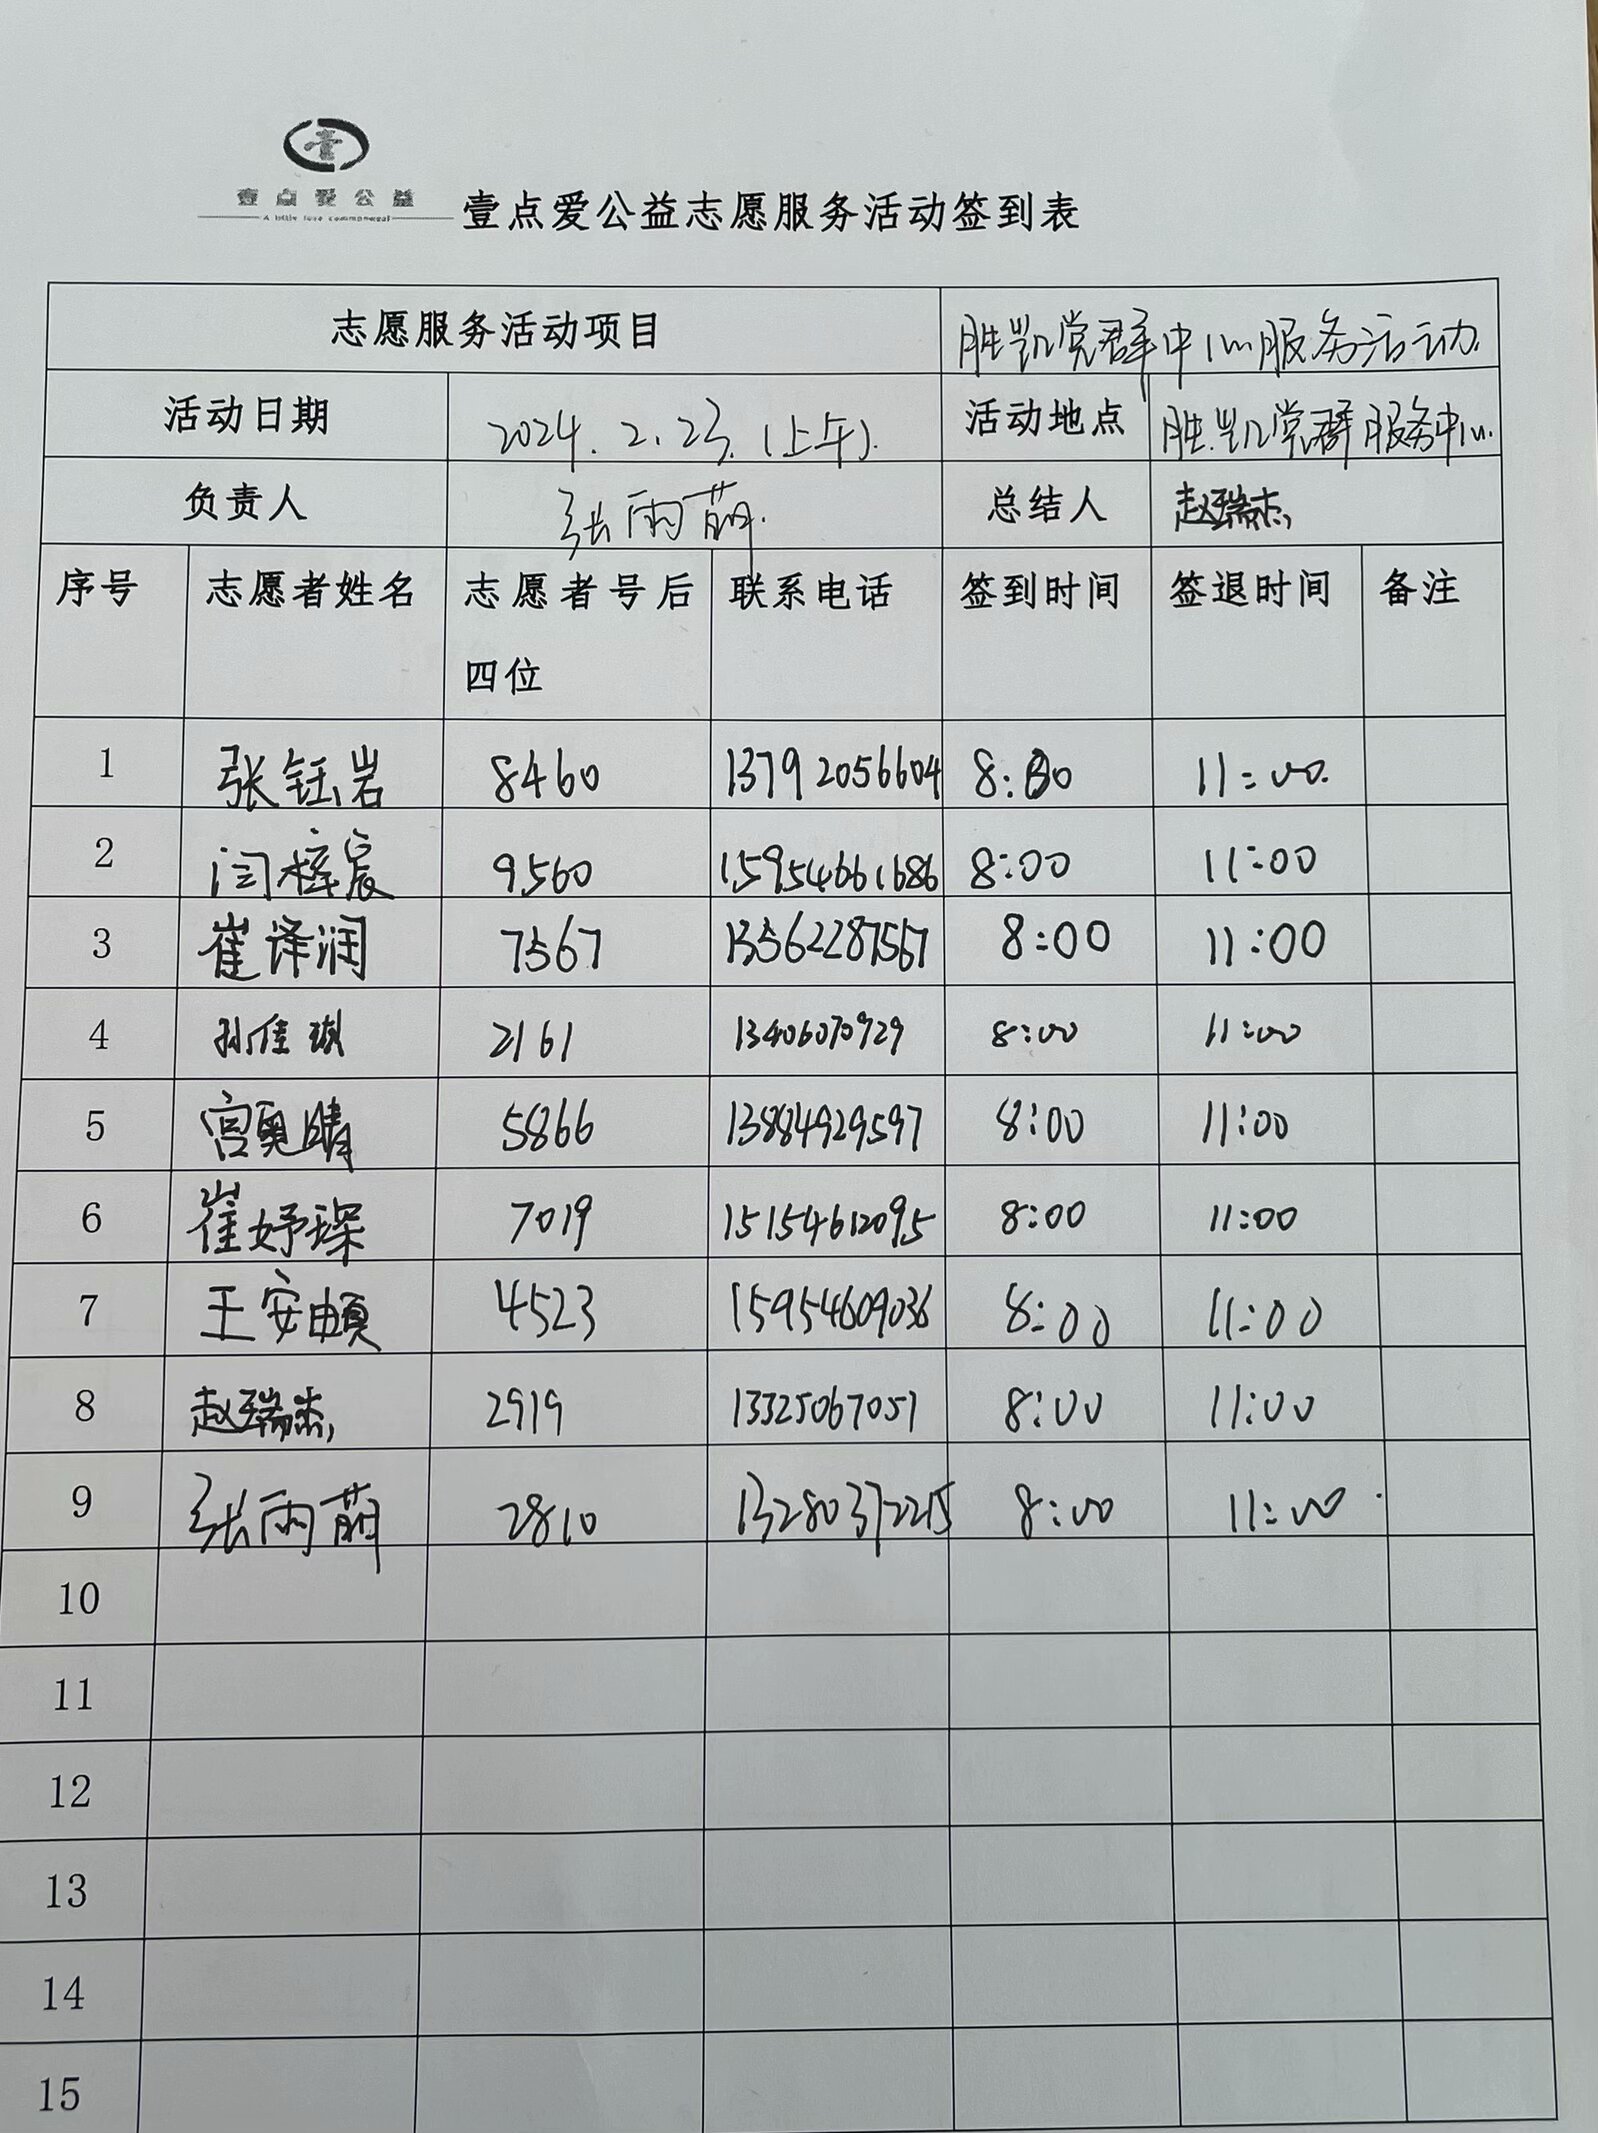 壹点爱公益
A little love commonweal
壹点爱公益志愿服务活动签到表
志愿服务活动项目 胜凯党群中心服务活动.
活动日期 2024.2.23.(上午). 活动地点 胜凯党群服务中心.
负责人 张雨萌. 总结人 赵瑞杰
序号 志愿者姓名 志愿者号后四位 联系电话 签到时间 签退时间 备注
1 张钰岩 8460 13792056604 8:00 11:00.
2 闫梓宸 9560 15954661686 8:00 11:00
3 崔译润 7567 13562287567 8:00 11:00
4 孙佳琪 2161 13406070929 8:00 11:00
5 宫奥晴 5866 13884929597 8:00 11:00
6 崔妤琛 7019 15154612095 8:00 11:00
7 王安 4523 15954609036 8:00 11:00
8 赵瑞杰 2919 13325067051 8:00 11:00
9 张雨萌 2810 13280372215 8:00 11:00
10
11
12
13
14
15